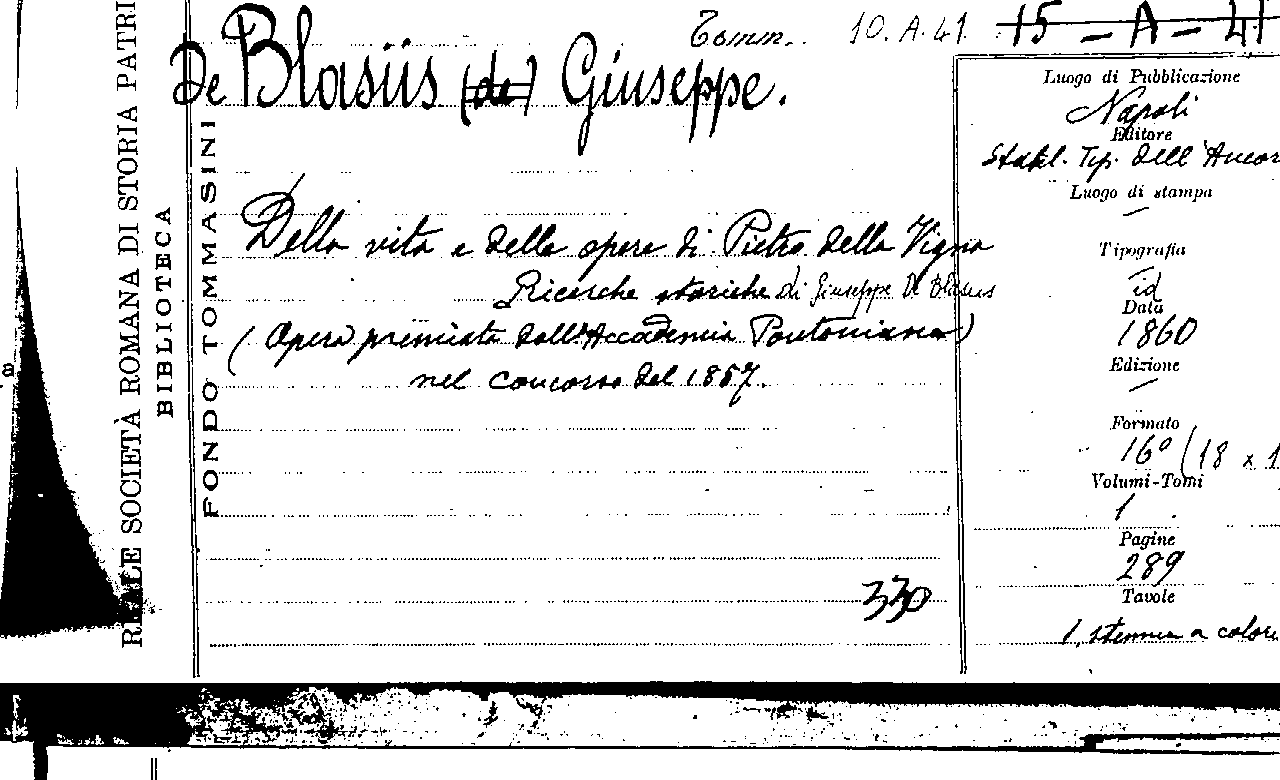 Tomm. 10.A.41. 15 - A - 41
De Blasiis (de) Giuseppe.
Della vita e delle opere di Pietro della Vigna
Ricerche storiche di Giuseppe De Blasiis
(Opera premiata dall'Accademia Pontaniana)
nel concorso del 1857.
330
Luogo di Pubblicazione
Napoli
Editore
Stabl. Tip. dell'Ancor
Luogo di stampa
Tipografia
id
Data
1860
Edizione
Formato
16° (18 x 1
Volumi-Tomi
1
Pagine
289
Tavole
1, stemma a colori
REALE SOCIETÀ ROMANA DI STORIA PATRI
BIBLIOTECA
FONDO TOMMASINI
a